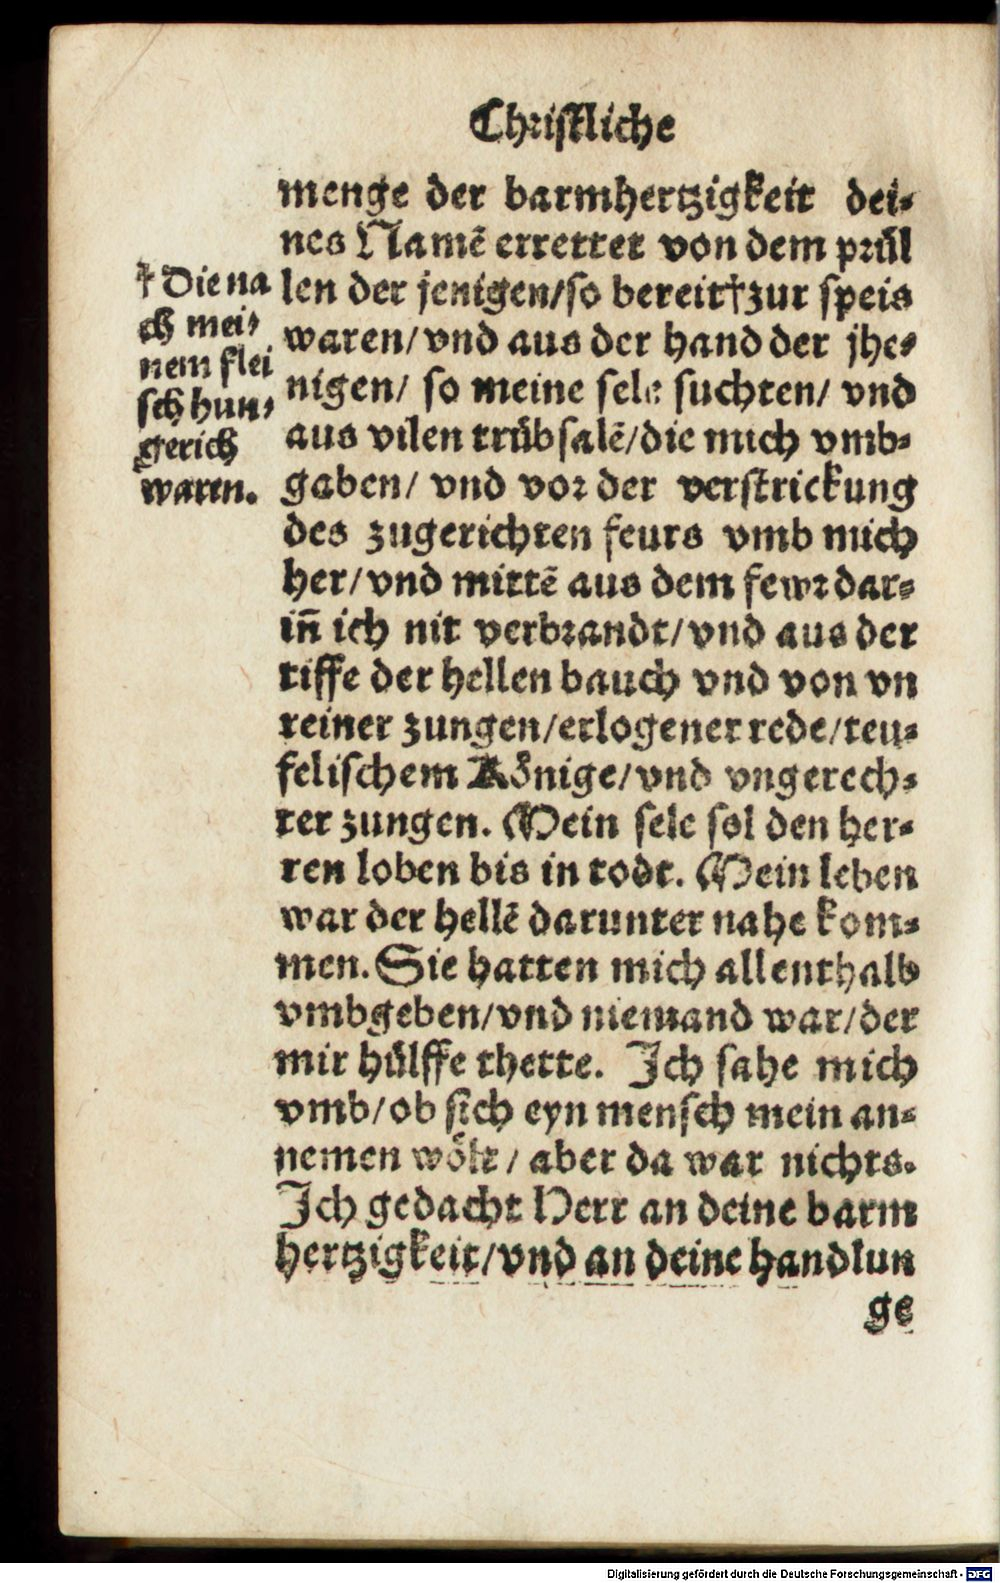 Christliche
menge der barmhertzigkeit dei⸗
nes Namẽ errettet von dem prül
len der jenigen/so bereit†zur speis
waren/vnd aus der hand der jhe⸗
nigen/ so meine sele suchten/ vnd
aus vilen trübsalẽ/die mich vmb⸗
gaben/ vnd vor der verstrickung
des zugerichten feurs vmb mich
her/vnd mittẽ aus dem fewr dar⸗
iñ ich nit verbrandt/vnd aus der
tiffe der hellen bauch vnd von vn
reiner zungen/erlogener rede/teu⸗
felischem Könige/vnd vngerech⸗
ter zungen. Mein sele sol den her⸗
ren loben bis in todt. Mein leben
war der hellẽ darunter nahe kom⸗
men. Sie hatten mich allenthalb
vmbgeben/vnd niemand war/der
mir hülffe thette. Ich sahe mich
vmb/ob sich eyn mensch mein an⸗
nemen wölt/ aber da war nichts.
Ich gedacht Herr an deine barm
hertzigkeit/vnd an deine handlun
ge
† Die na
ch mei⸗
nem flei
sch hun⸗
gerich
waren.
Digitalisierung gefördert durch die Deutsche Forschungsgemeinschaft - DFG